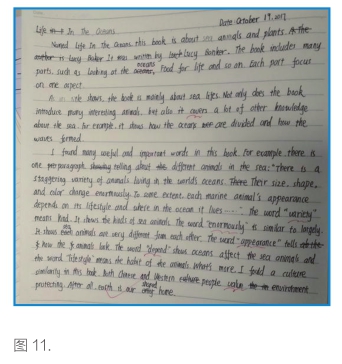 Date: October 19, 2017
Life in The Oceans
Named Life In the Oceans, this book is about sea animals and plants. As the
author is Lucy Baker. It was written by Lucy Bunker. The book includes many
parts, such as looking at the oceans, Food for life and so on. Each part focus
on one aspect.
As title shows, the book is mainly about sea lifes. Not only does the book
introduce many interesting animals, but also it covers a lot of other knowledge
about the sea. For example, it shows how the oceans are divided and how the
waves formed.
I found many useful and important words in this book. For example, there is
one paragraph telling about different animals in the sea: "There is a
staggering variety of animals living in the world's oceans. There Their size, shape,
and color change enormously. To some extent, each marine animal's appearance
depends on its lifestyle and where in the ocean it lives ... ". The word "variety"
means kind. It shows the kinds of sea animals. The word "enormously" is similar to largely.
It shows sea animals are very different from each other. The word "appearance" tells
how the animals look. The word "depend" shows oceans affect the sea animals and
the word "lifestyle" means the habit of the animals. What's more, I find a culture
similarity in this book. Both Chinese and Western people value the environment
protecting. After all, earth is our shared home.
图 11.